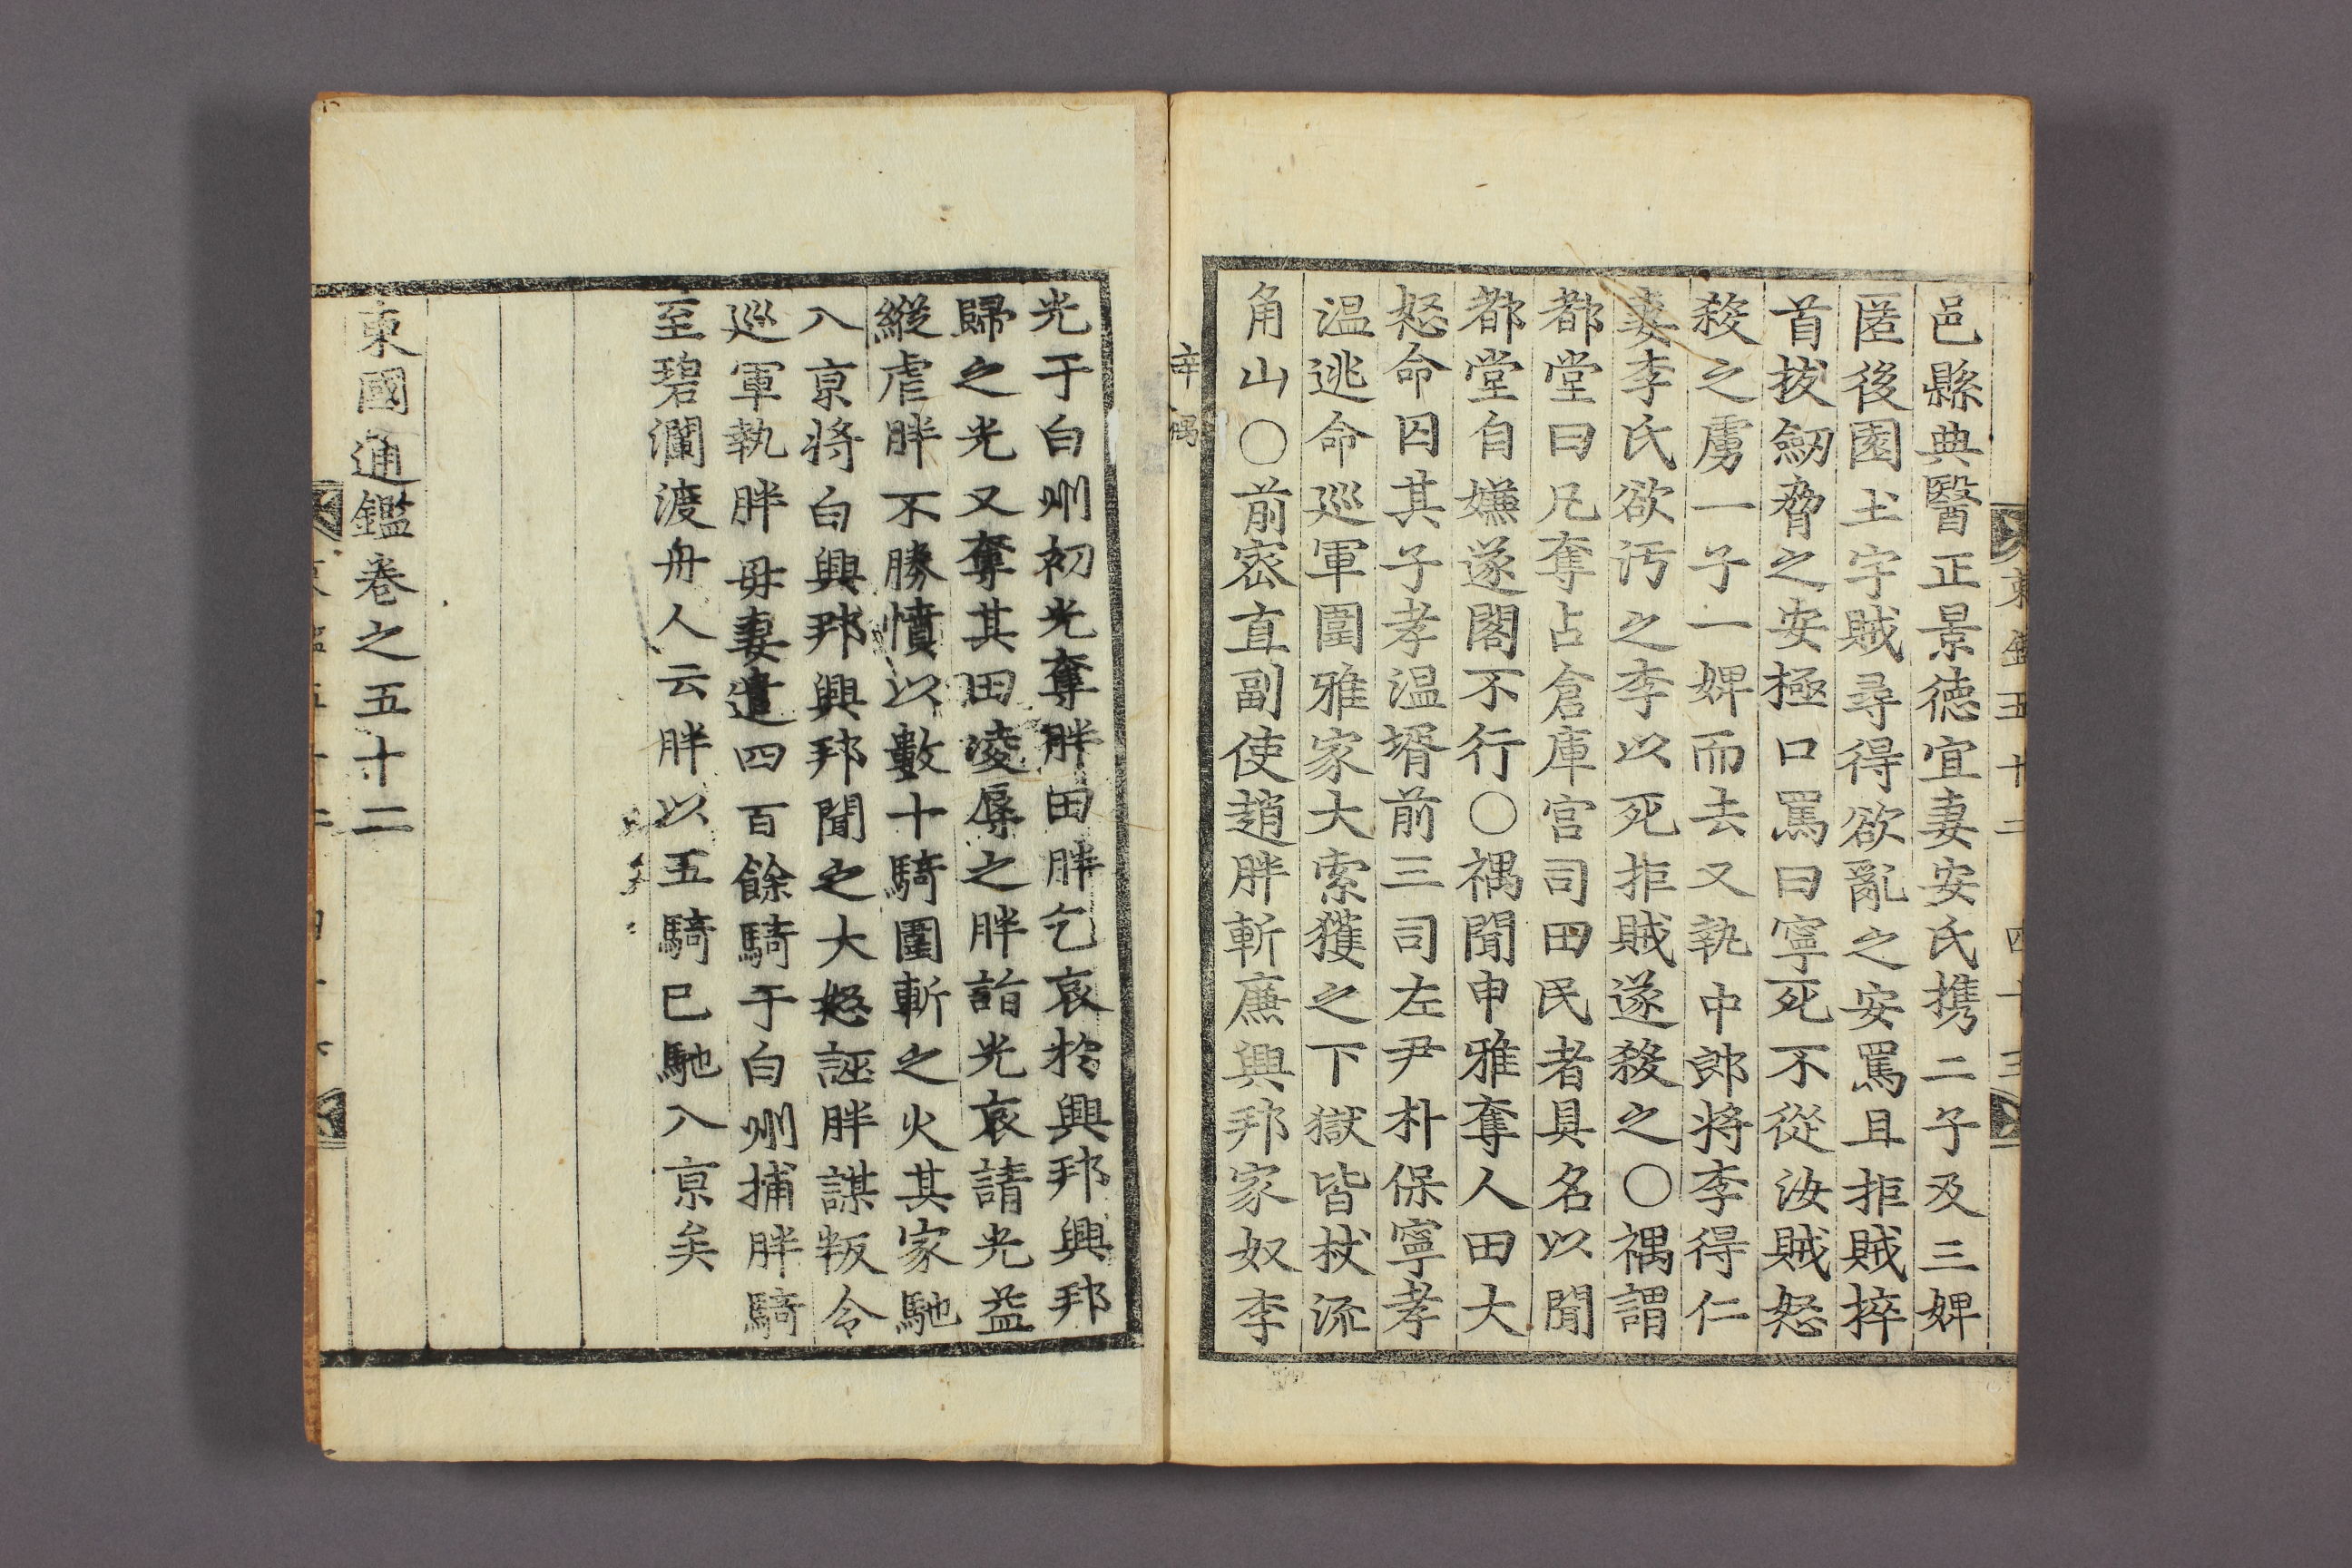 邑縣典醫正景德宜妻安氏携二子及三婢
匿後園土宇賊尋得欲亂之安罵且拒賊捽
首拔劒脅之安極口罵曰寧死不從汝賊怒
殺之虜一子一婢而去又執中郎將李得仁
妻李氏欲汚之李以死拒賊遂殺之○禑謂
都堂曰凡奪占倉庫宮司田民者具名以聞
都堂自嫌遂閣不行○禑聞申雅奪人田大
怒命囚其子孝温壻前三司左尹朴保寧孝
温逃命巡軍圍雅家大索獲之下獄皆杖流
角山○前密直副使趙胖斬廉興邦家奴李
辛禑
光于白州初光奪胖田胖乞哀於興邦興邦
歸之光又奪其田凌辱之胖詣光哀請光益
縱虐胖不勝憤以數十騎圍斬之火其家馳
入京將白興邦興邦聞之大怒誣胖謀叛令
巡軍執胖母妻遣四百餘騎于白州捕胖騎
至碧瀾渡舟人云胖以五騎已馳入京矣
東國通鑑卷之五十二